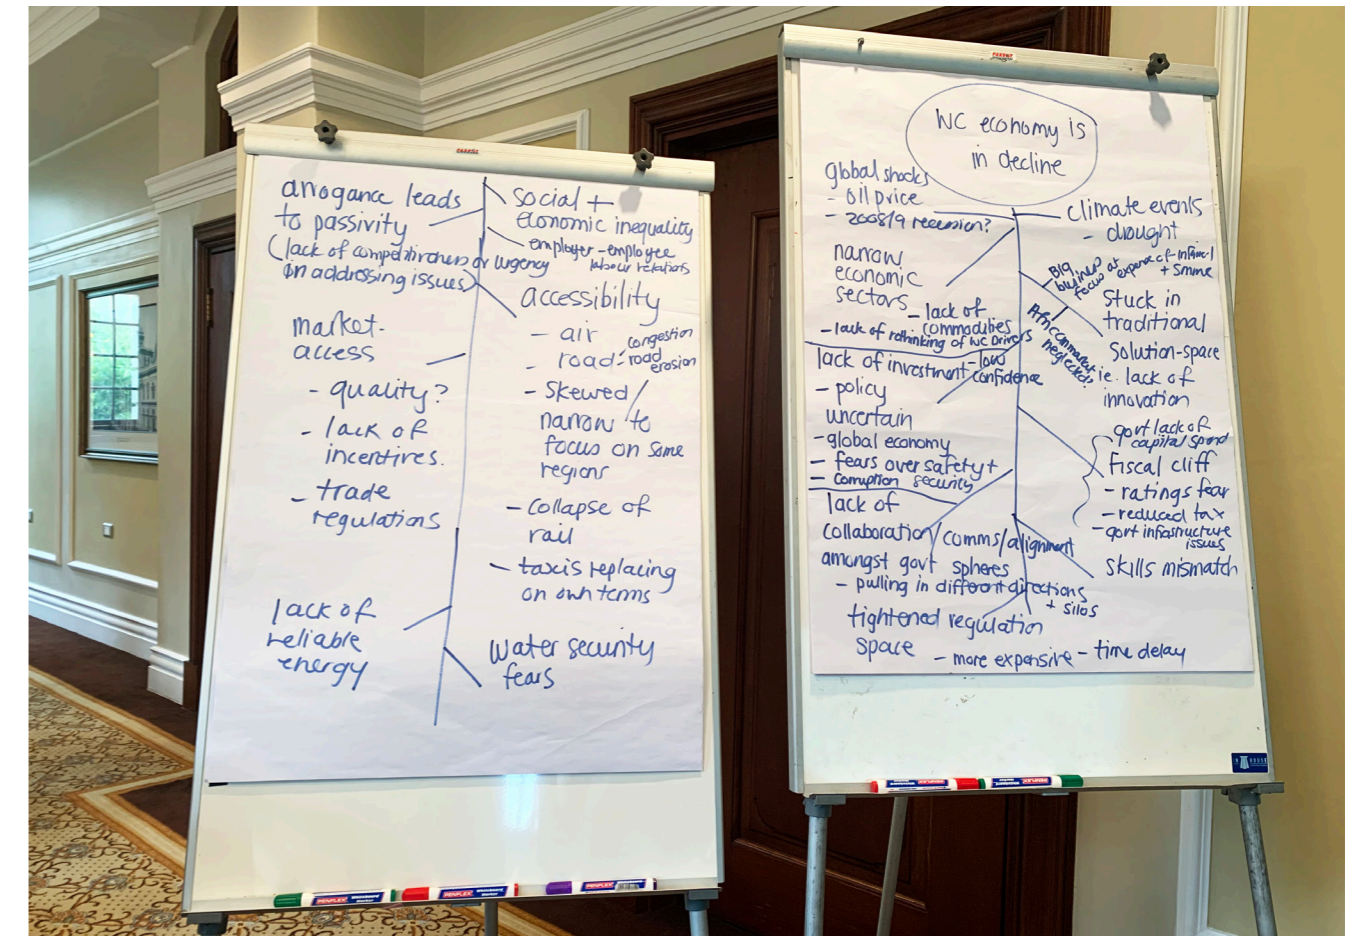 arrogance leads
to passivity
(lack of competitiveness or urgency
on addressing issues)
market-
access
- quality?
- lack of
incentives.
- trade
regulations
lack of
reliable
energy
social +
economic inequality
employer - employee
labour relations
accessibility
- air
- road - congestion
- road
erosion
- skewed/
narrow to
focus on same
regions
- collapse of
rail
- taxis replacing
on own terms
water security
fears
PENFLEX Whiteboard Marker
PENFLEX Whiteboard Marker
PENFLEX
PARROT
WC economy is
in decline
global shocks
- oil price
- 2008/9 recession?
narrow
economic
sectors
- lack of
commodities
- lack of rethinking of WC Drivers
lack of investment - low
confidence
- policy
uncertain
- global economy
- fears over safety +
security
- corruption
lack of
collaboration/comms/alignment
amongst govt spheres
- pulling in different directions
+ silos
tightened regulation
space
- more expensive - time delay
climate events
- drought
Big
business?
focus at expense of - informal
+ smme
African market
neglected?
Stuck in
traditional
Solution-space
ie. lack of
innovation
govt lack of
capital spend
fiscal cliff
- ratings fear
- reduced tax
- govt infrastructure
issues
skills mismatch
IN HOUSE
PENFLEX
PENFLEX